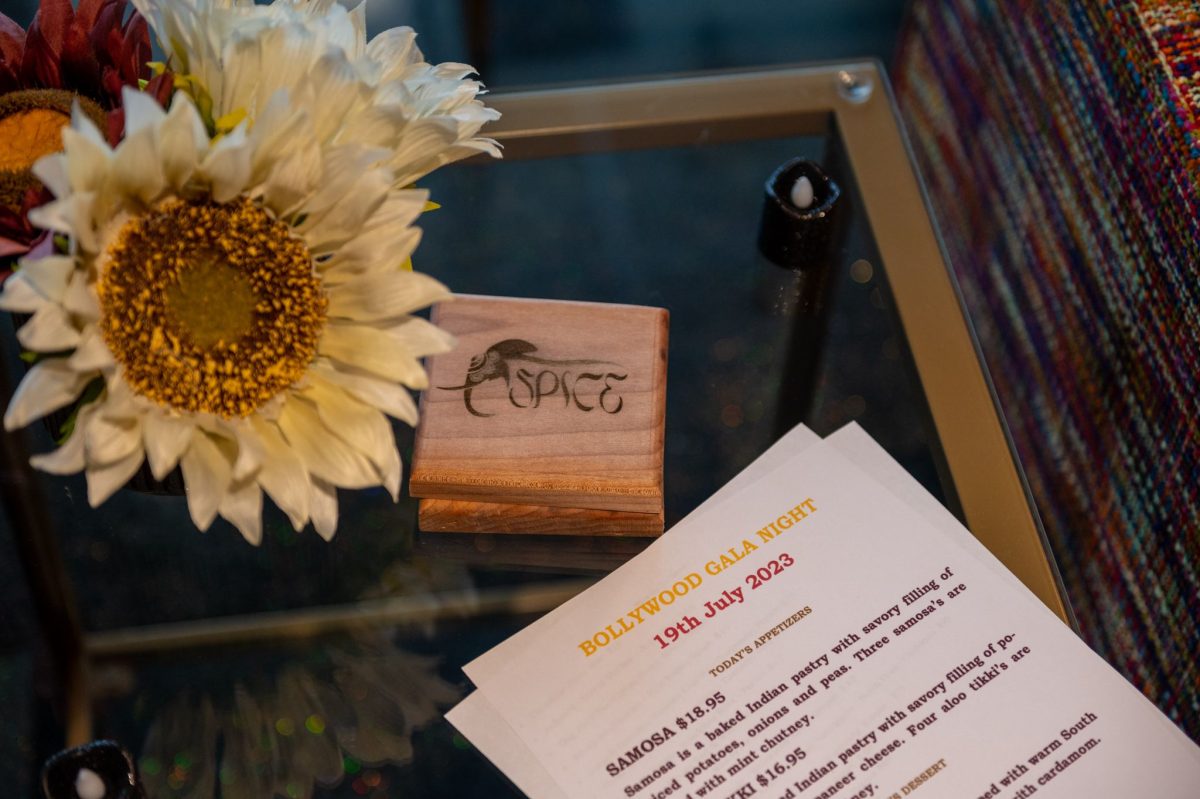 SPICE
BOLLYWOOD GALA NIGHT
19th July 2023
TODAY'S APPETIZERS
SAMOSA $18.95
Samosa is a baked Indian pastry with savory filling of
potatoes, onions and peas. Three samosa's are
with mint chutney.
$16.95
Indian pastry with savory filling of po-
cheese. Four aloo tikki's are
DESSERT
with warm South
with cardamom.